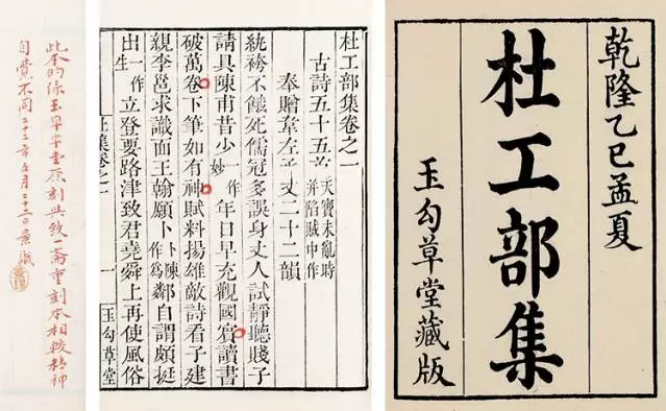 乾隆乙巳孟夏
杜工部集
玉勾草堂藏版
杜工部集卷之一
古詩五十五首 天寶未亂時并陷賊中作
奉贈韋左丞丈二十二韻
紈袴不餓死儒冠多誤身丈人試靜聽賤子
請具陳甫昔少一作妙年日早充觀國賓讀書
破萬卷下筆如有神賦料揚雄敵詩看子建
親李邕求識面王翰願卜卜陳作為鄰自謂頗挺
出一作生立登要路津致君堯舜上再使風俗
杜集卷之一 一 玉勾草堂
此本的係玉草堂原刻與致一齋重刻本相較精神
自覺不同二十二年五月二十三日景